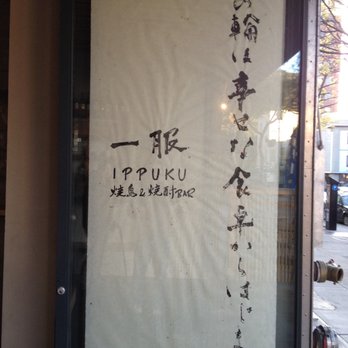 の輪は幸せな食卓からはじま
一服
IPPUKU
焼鳥と焼酎BAR